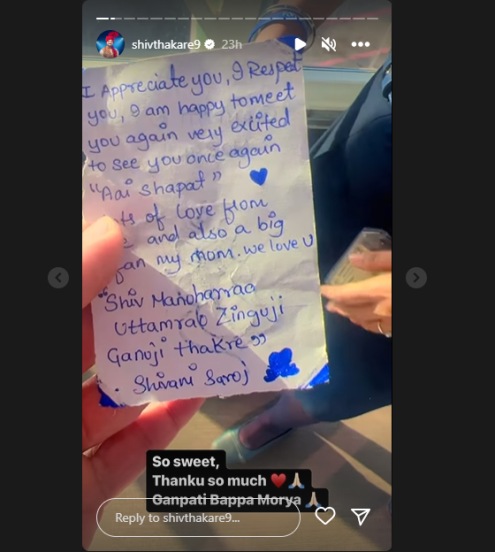 shivthakare9 23h
I Appreciate you, I Respet
you, I am happy to meet
you again very excited
to see you once again
"Aai shapat"
of love from
and also a big
fan my mom. we love U
"Shiv Manoharrao
Uttamrao Zinguji
Ganuji thakre"
. Shivani Saroj
So sweet,
Thanku so much ❤️🙏🏻
Ganpati Bappa Morya 🙏🏻
Reply to shivthakare9...